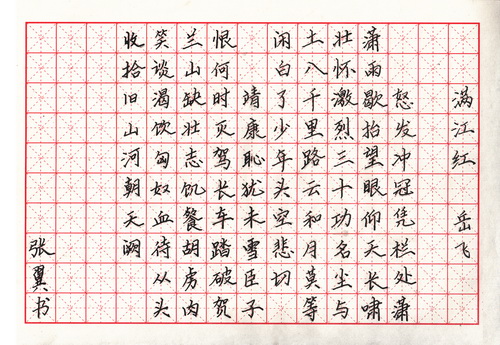 满江红 岳飞
怒发冲冠凭栏处潇
潇雨歇抬望眼仰天长啸
壮怀激烈三十功名尘与
土八千里路云和月莫等
闲白了少年头空悲切
靖康耻犹未雪臣子
恨何时灭驾长车踏破贺
兰山缺壮志饥餐胡虏肉
笑谈渴饮匈奴血待从头
收拾旧山河朝天阙
张翼书